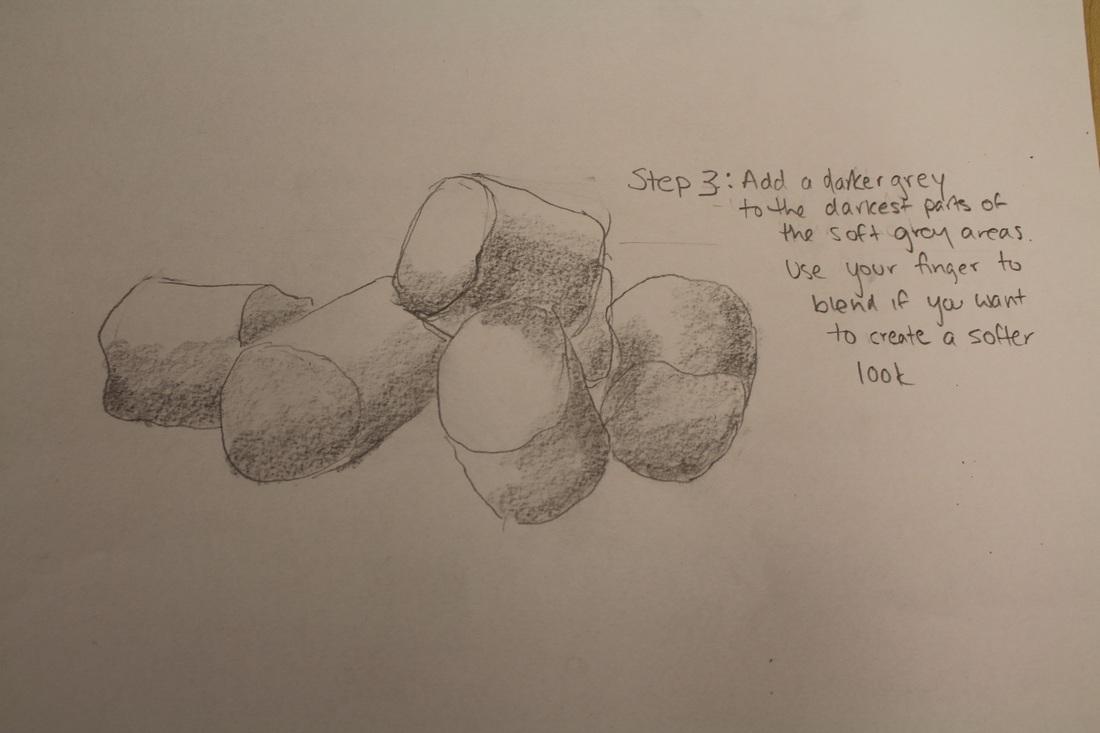 Step 3: Add a darker grey
to the darkest parts of
the soft grey areas.
Use your finger to
blend if you want
to create a softer
look